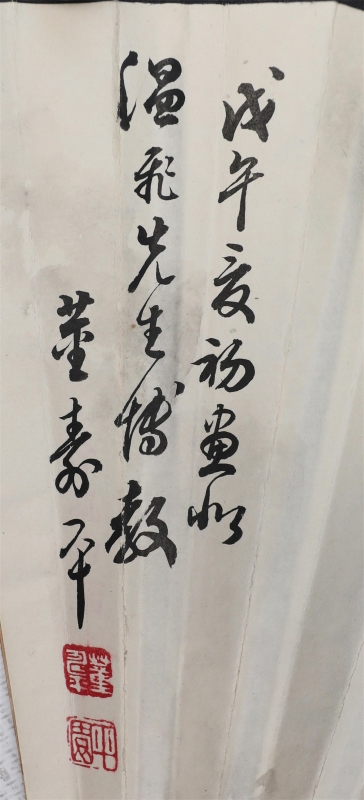 戊午夏初画似
温飛先生博教
董寿平